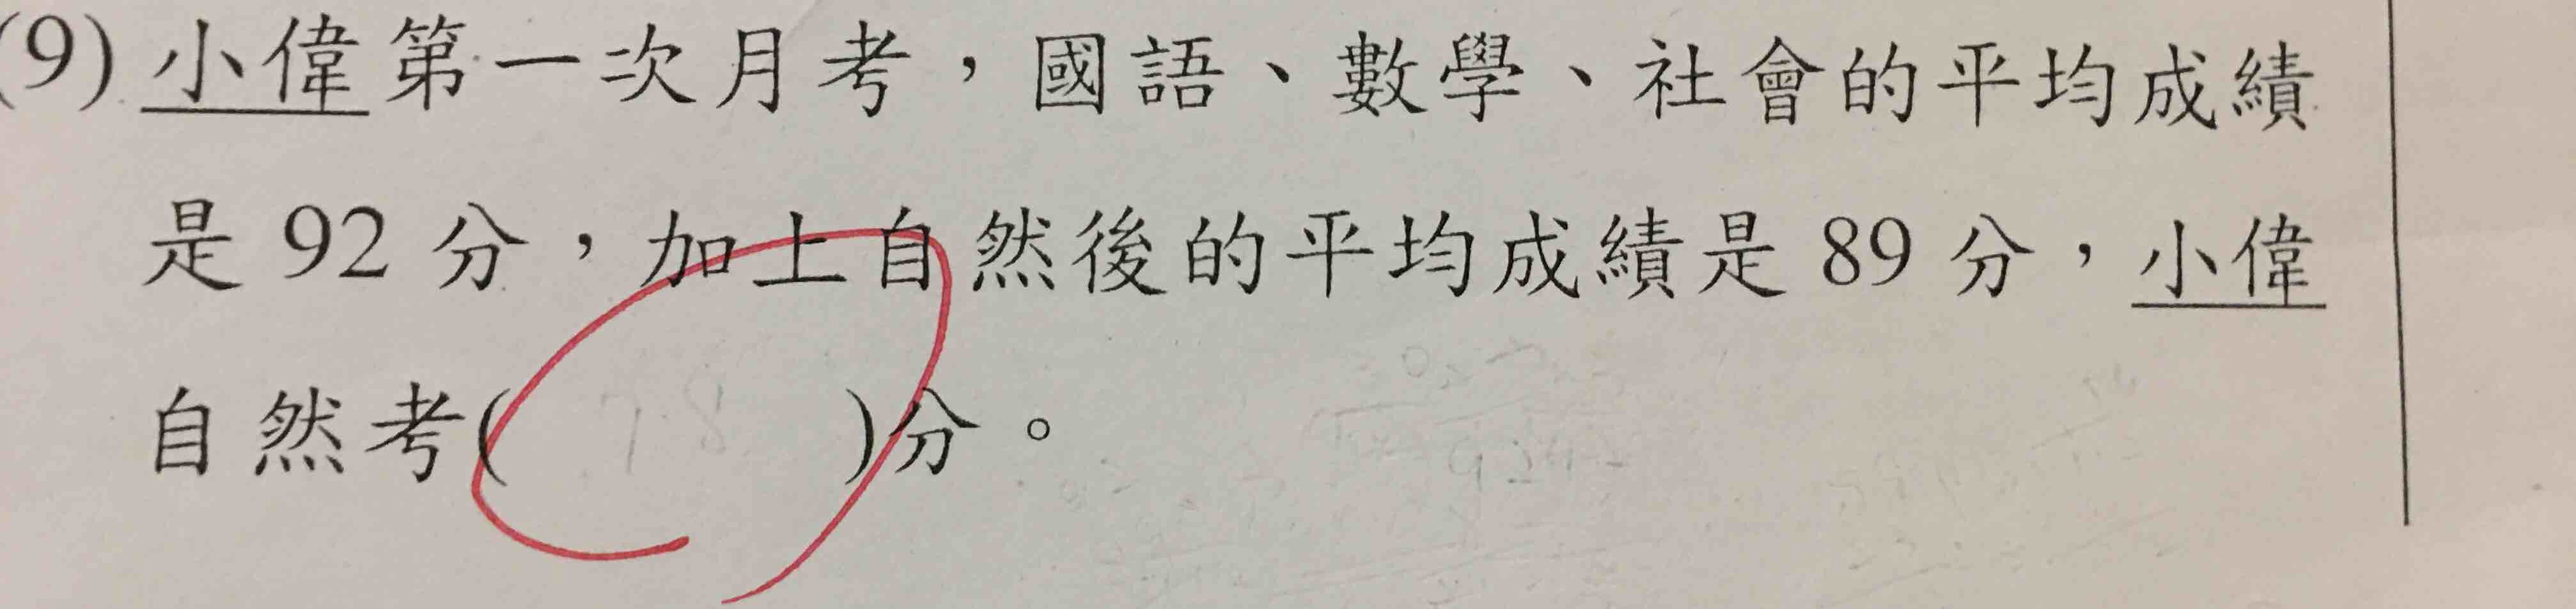 (9) 小偉第一次月考，國語、數學、社會的平均成績
是 92 分，加上自然後的平均成績是 89 分，小偉
自然考( )分。